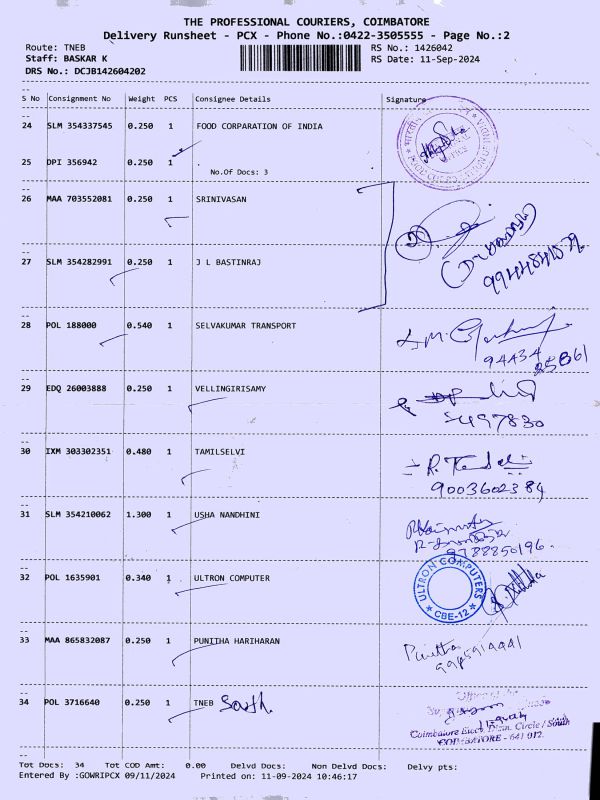 THE PROFESSIONAL COURIERS, COIMBATORE
Delivery Runsheet - PCX - Phone No.:0422-3505555 - Page No.:2
Route: TNEB RS No.: 1426042
Staff: BASKAR K RS Date: 11-Sep-2024
DRS No.: DCJB142604202
S No Consignment No Weight PCS Consignee Details Signature
24 SLM 354337545 0.250 1 FOOD CORPARATION OF INDIA
25 DPI 356942 0.250 1
No.Of Docs: 3
26 MAA 703552081 0.250 1 SRINIVASAN
27 SLM 354282991 0.250 1 J L BASTINRAJ
28 POL 188000 0.540 1 SELVAKUMAR TRANSPORT
94434
85861
29 EDQ 26003888 0.250 1 VELLINGIRISAMY
497830
30 IXM 303302351 0.480 1 TAMILSELVI
9003602384
31 SLM 354210062 1.300 1 USHA NANDHINI
9788850196
32 POL 1635901 0.340 1 ULTRON COMPUTER
ULTRON COMPUTERS
CBE-12
33 MAA 865832087 0.250 1 PUNITHA HARIHARAN
Punitha
34 POL 3716640 0.250 1 TNEB South
Coimbatore Elecy. Distn. Circle / South
COIMBATORE - 641 012.
Tot Docs: 34 Tot COD Amt: 0.00 Delvd Docs: Non Delvd Docs: Delvy pts:
Entered By :GOWRIPCX 09/11/2024 Printed on: 11-09-2024 10:46:17